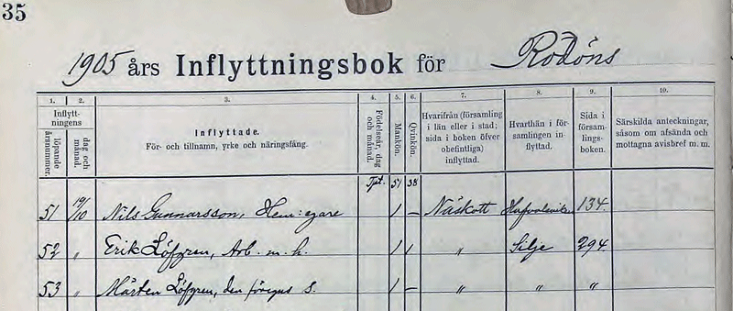 35
1905 års Inflyttningsbok för Rödöns
1. 2. 3. 4. 5. 6. 7. 8. 9. 10.
Inflytt-
ningens
löpande
årsnummer.
dag och
månad.
Inflyttade.
För- och tillnamn, yrke och näringsfång.
Födelseår, dag
och månad.
Mankön.
Qvinkön.
Hvarifrån (församling
i län eller i stad;
sida i boken öfver
obefintliga)
inflyttad.
Hvarthän i för-
samlingen in-
flyttad.
Sida i
försam-
lings-
boken.
Särskilda anteckningar,
såsom om afsända och
mottagna avisbref m. m.
Tpt. 51 38
51 19/10 Nils Gunnarsson, Hem: egare 1 – Näskott 134.
52 " Erik Löfgren, Arb. m. h. 1 1 " Silje 294.
53 " Mårten Löfgren, den föregus S. 1 – " " "